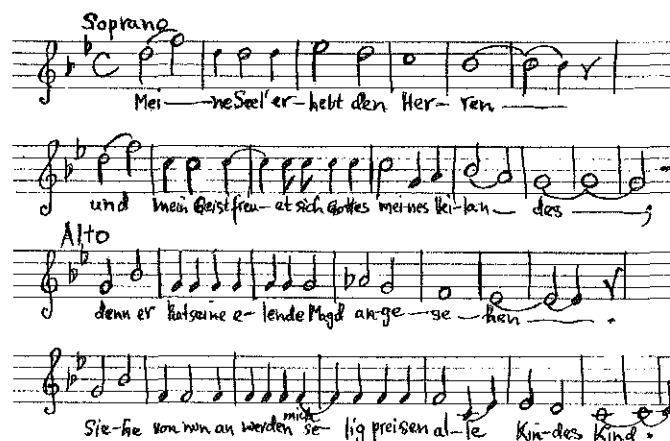 Soprano
Mei — ne Seel' er - hebt den Her - ren —
und mein Geist freu - et sich Gottes meines Hei - lan - des — ;
Alto
denn er hat seine e - lende Magd an - ge - se - hen — .
Sie - he von nun an werden mich se - lig preisen al - le Kin - des Kind.